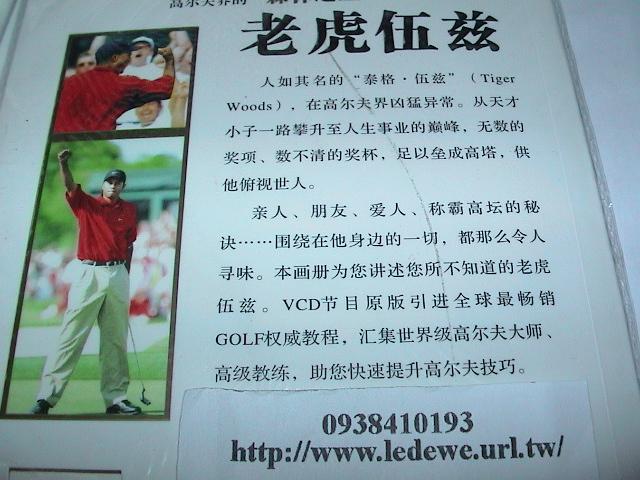 高尔夫界的
老虎伍兹
人如其名的“泰格·伍兹”（Tiger
Woods），在高尔夫界凶猛异常。从天才
小子一路攀升至人生事业的巅峰，无数的
奖项、数不清的奖杯，足以垒成高塔，供
他俯视世人。
亲人、朋友、爱人、称霸高坛的秘
诀……围绕在他身边的一切，都那么令人
寻味。本画册为您讲述您所不知道的老虎
伍兹。VCD节目原版引进全球最畅销
GOLF权威教程，汇集世界级高尔夫大师、
高级教练，助您快速提升高尔夫技巧。
0938410193
http://www.ledewe.url.tw/